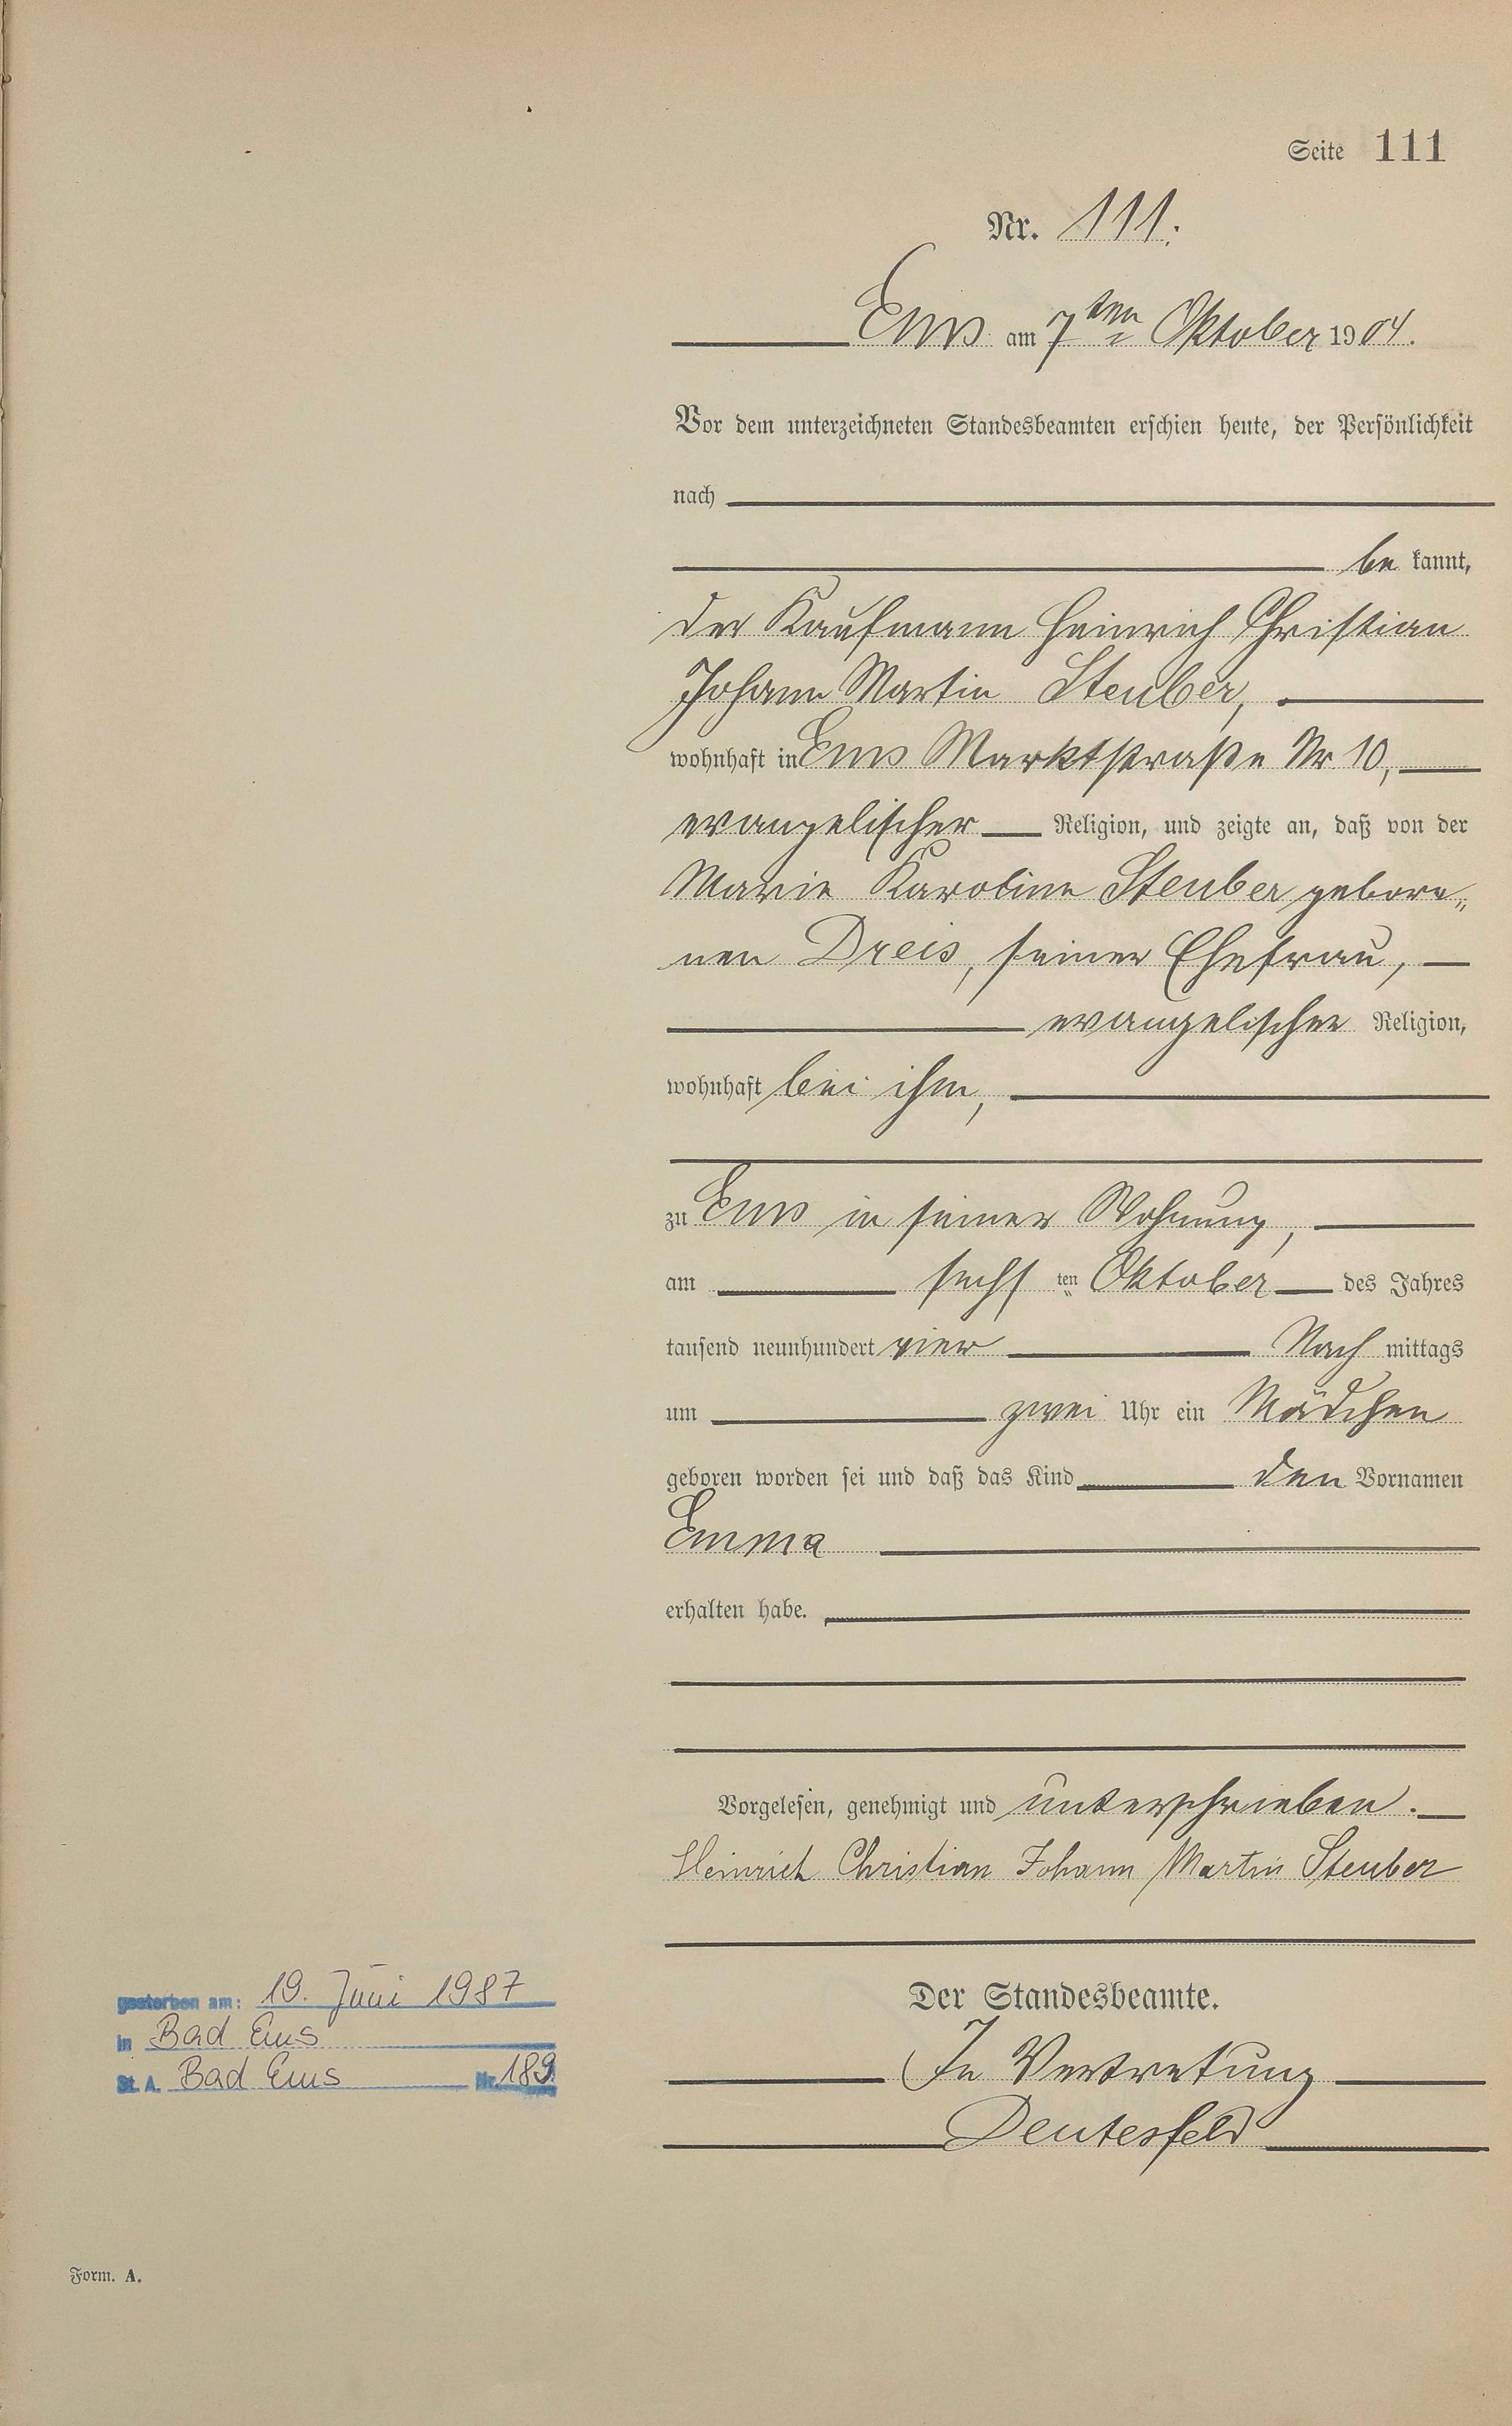 Seite 111
Nr. 111.
Ems am 7ten Oktober 1904.
Vor dem unterzeichneten Standesbeamten erschien heute, der Persönlichkeit
nach
be kannt,
der Kaufmann Heinrich Christian
Johann Martin Steuber,
wohnhaft in Ems Marktstraße Nr. 10,
evangelischer Religion, und zeigte an, daß von der
Marie Karoline Steuber gebore„
nen Dreis, seiner Ehefrau,
evangelischer Religion,
wohnhaft bei ihm,
zu Ems in seiner Wohnung,
am sechs ten Oktober des Jahres
tausend neunhundert vier Nach mittags
um zwei Uhr ein Mädchen
geboren worden sei und daß das Kind den Vornamen
Emma
erhalten habe.
Vorgelesen, genehmigt und unterschrieben.
Heinrich Christian Johann Martin Steuber
Der Standesbeamte.
In Vertretung
Deutesfeld
gestorben am: 19. Juni 1987
in Bad Ems
St. A. Bad Ems Nr. 189
Form. A.